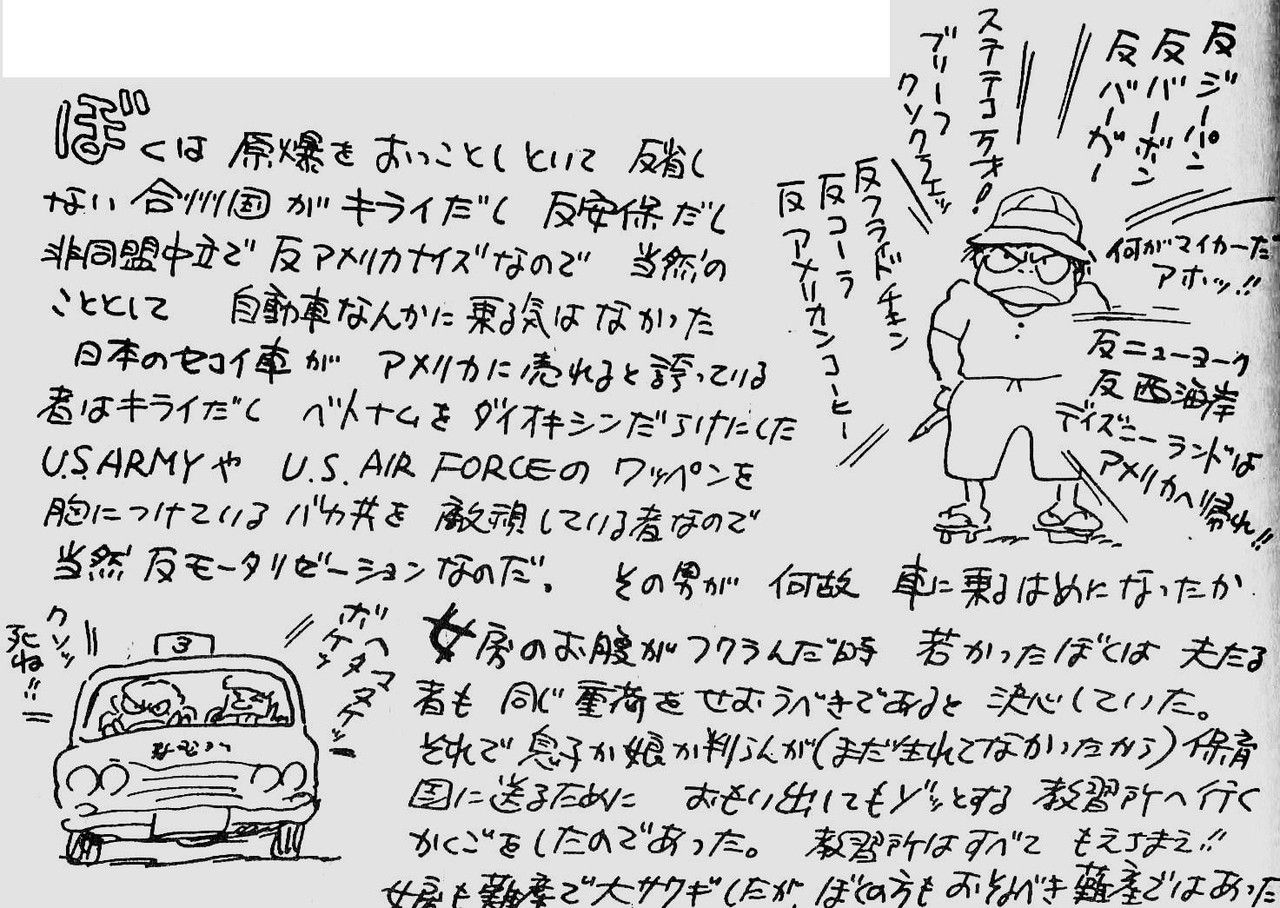 ぼくは 原爆を おっことしといて 反省し
ない 合州国が キライだし 反安保だし
非同盟中立で 反アメリカナイズなので 当然の
こととして 自動車なんかに 乗る気は なかった
日本のセコイ車が アメリカに 売れると 誇っている
者はキライだし ベトナムを ダイオキシンだらけにした
U.S ARMYや U.S. AIR FORCEの ワッペンを
胸につけている バカ共を 敵視している者なので
当然 反モータリゼーションなのだ。 その男が 何故 車に乗るはめになったか
女房のお腹がフクラんだ時 若かったぼくは 夫たる
者も 同じ重荷を せおうべきであると 決心していた。
それで 息子か娘か判らんが(まだ生れてなかったから) 保育
園に送るために おもい出してもゾッとする 教習所へ行く
かくごをしたのであった。 教習所はすべて もえちまえ!!
女房も難産で大サワギしたが、ぼくの方も おそるべき難産ではあった
反ジーパン
反バーボン
反バーガー
ステテコ万才!
ブリーフ
クソクラエッ
反フライドチキン
反コーラ
反アメリカンコーヒー
何がマイカーだ
アホッ!!
反ニューヨーク
反西海岸
ディズニーランドは
アメリカへ帰れ!!
ヘタマタケッ
ボケッ
クソッ
死ね!!
3